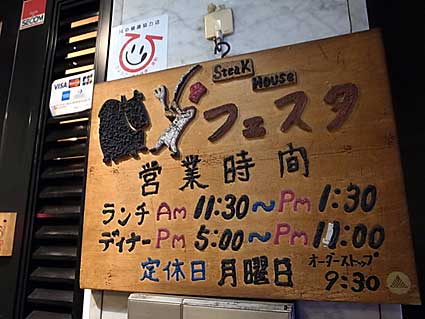 SECOM
VISA
Steak House
フェスタ
営業時間
ランチ Am 11:30〜Pm 1:30
ディナー Pm 5:00〜Pm 11:00
定休日 月曜日 オーダーストップ
9:30